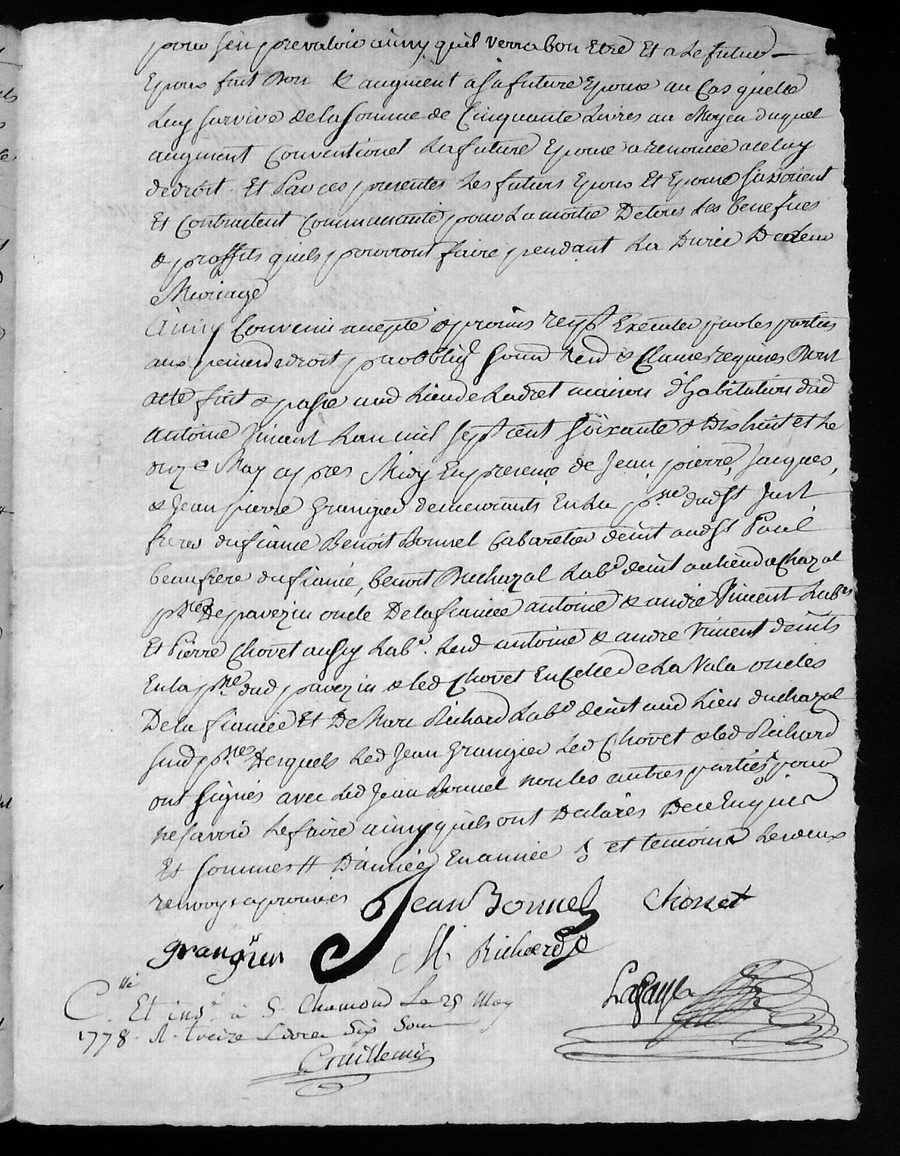 pour s'en prevaloir ainsy quil verra bon Etre Et a Le futur
Epoux fait Don & augment a sa future Epouse au Cas quelle
Luy survive de la somme de Cinquante Livres au Moyen duquel
augment Conventionel La future Epouse a renoncée a celuy
de droit. Et Par ces presentes Les futurs Epoux Et Epouse s'associent
Et Contractent Communauté pour La moitié De tous Les benefices
& proffits quils pourront faire pendant La Durée De leur
Mariage
Ainsy Convenu accepté & promis Executer par les parties
aux peines de droit par oblig. Soum. Rend & Clauses requises Dont
acte fait & passé aud Lieu de maison d'habitation dud
Antoine Vincent L'an mil sept cent soixante & Dixhuit et Le
onze May apres Midy En presence de Jean, pierre, Jacques,
& Jean pierre Grangier demeurants En La psse dud St Just
freres du fiancé Benoit Bonnel Cabaretier demt aud St Paul
beaufrere du fiancé, benoit Duchazal Labr demt au Lieu de Chazal
psse De pavezin oncle De la fiancée antoine & andré Vincent Labrs
Et Pierre Chovet aussy Labr. Led antoine & andré Vincent demts
En la psse dud pavezin & led Chovet En Celle de La Vala oncles
De la fiancée Et De Marc Richard Labr demt aud Lieu duchazal
susd psse Desquels Led Jean Grangier Led Chovet & led Richard
ont signés avec Led Jean Bonnel non les autres parties pour
ne savoir Le faire ainsy quils ont Declarés De ce Enquis
Et sommes # D'année En année § et temoins Les deux
renvoys aprouvés
Jean Bonnel Chovet
grangier M Richard
Lagaye
Clle Et insé à St Chamond Le 25 May
1778. R. treize Livres six sous